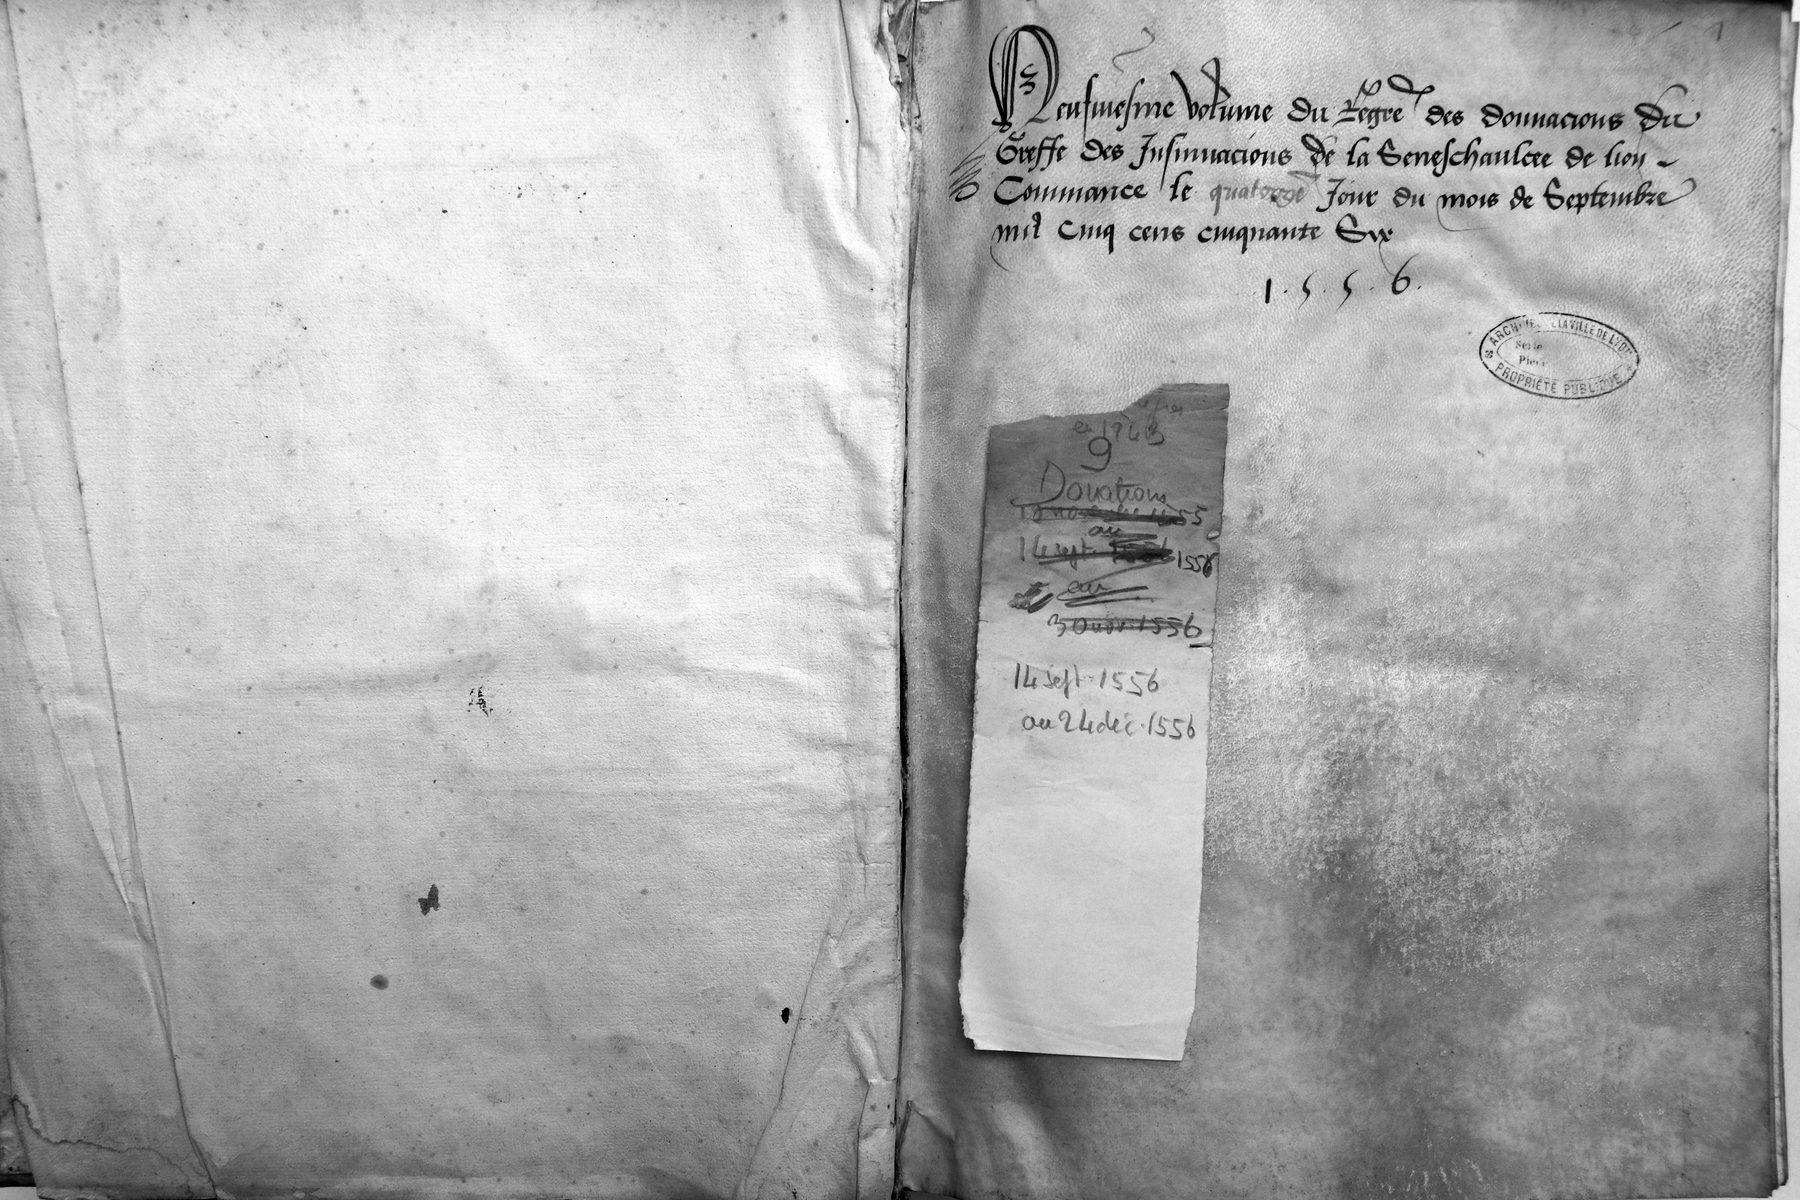 Neufuiesme volume du Regre des donnacions du
Greffe des Insinuacions de la Seneschaulcee de lion
Commance le quatorze Jour du mois de Septembre
mil Cinq cens cinquante Six
1.5.5.6.
ARCHIVES DE LA VILLE DE LYON
Série
Pièce
PROPRIÉTÉ PUBLIQUE
9
Donations
1555
au
14 sept. 1556
au
30 nov. 1556
14 sept. 1556
au 24 déc. 1556